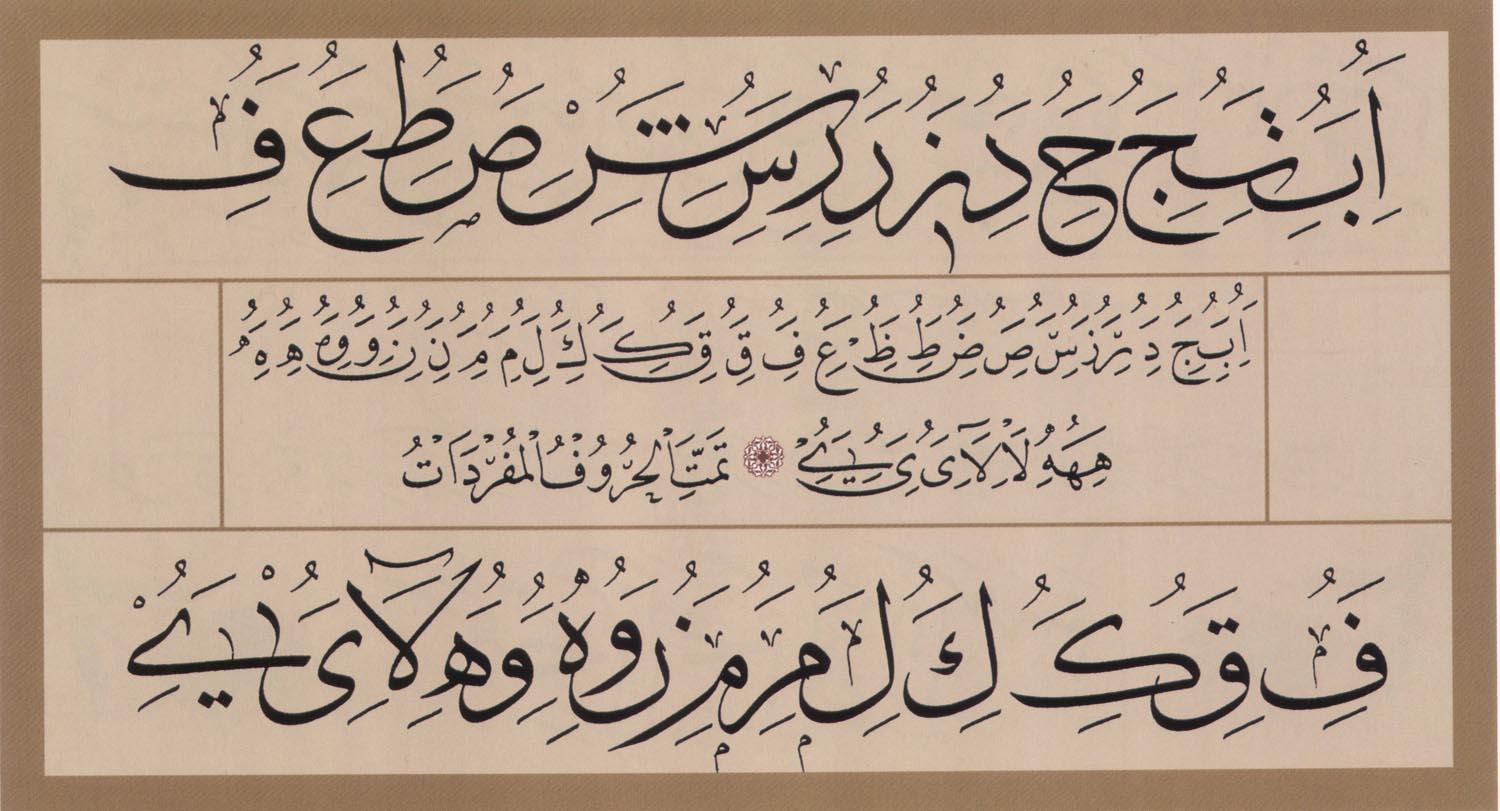 ا ب ت ج ح د ز ر ر س ش ص ط ع ف
ا ب ج د ر ز س ص ض ط ظ ع ف ق ق ك ك ل م م ن ن و و ه ه
ههه لا لا ى ى ي تَمَّتِ الحُرُوفُ المُفْرَدَاتُ
ف ق ك ك ل م م ن و ه و ه لا ى ي